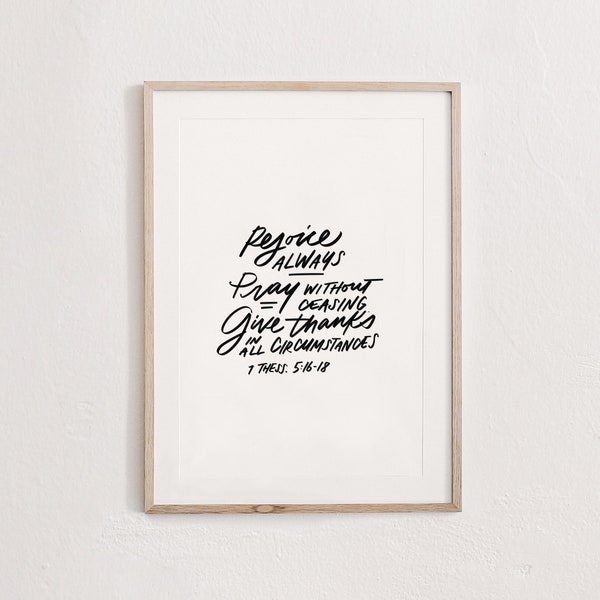 Rejoice
ALWAYS
Pray WITHOUT
CEASING
Give thanks
IN ALL CIRCUMSTANCES
1 THESS. 5:16-18